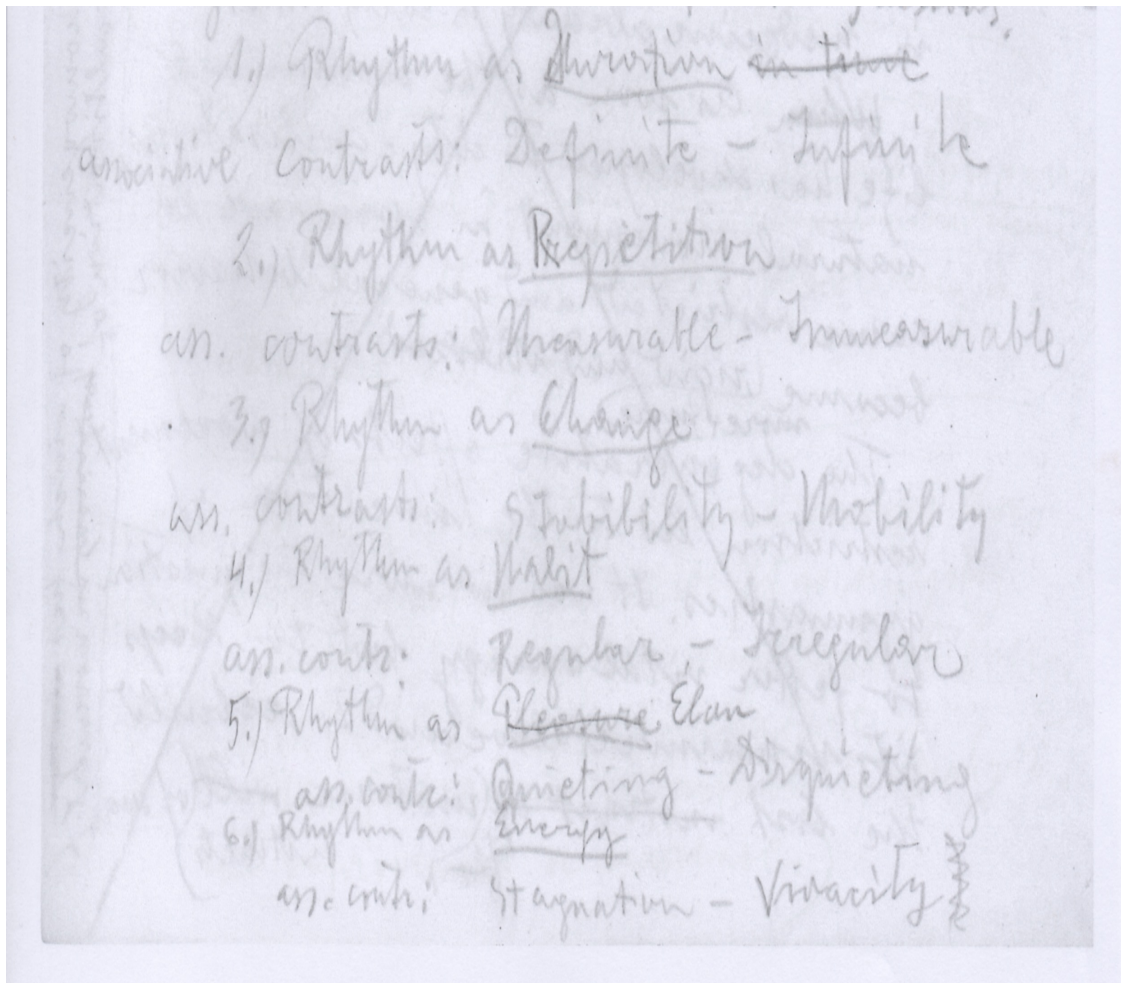 1.) Rhythm as Duration in time
associative contrasts: Definite - Infinite
2.) Rhythm as Repetition
ass. contrasts: Measurable - Immeasurable
3.) Rhythm as Change
ass. contrasts: Stabibility - Mobility
4.) Rhythm as Habit
ass. contr: Regular - Irregular
5.) Rhythm as Pleasure Elan
ass. contr: Quieting - Disquieting
6.) Rhythm as Energy
ass. contr: Stagnation - Vivacity